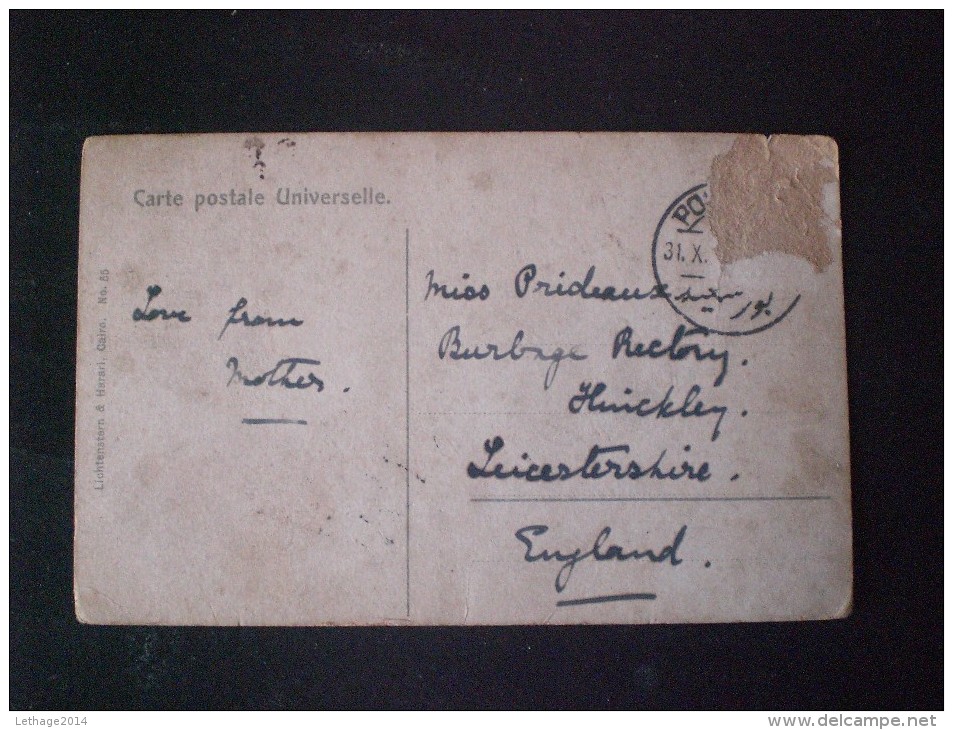 Carte postale Universelle.
Lichtenstern & Harari, Cairo. No. 55
Love from
Mother.
PO
31. X.
Miss Prideaux
Burbage Rectory.
Hinckley.
Leicestershire.
England.
Lethage2014
www.delcampe.net